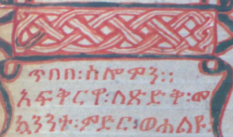 ጥበበ፡ሰሎሞን፡፡
አፍቅርዋ፡ለጽድቅ፡መ
ኳንንተ፡ምድር፡ወሐልዩ፡